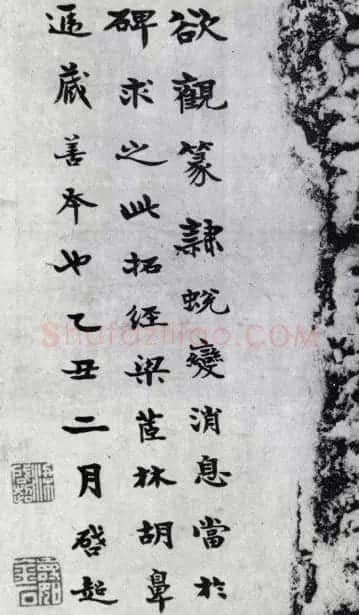 欲觀篆隸蛻變消息當於
碑求之此拓經梁茝林胡鼻
遞藏善本也乙丑二月啓超
Shufaziliao.COM